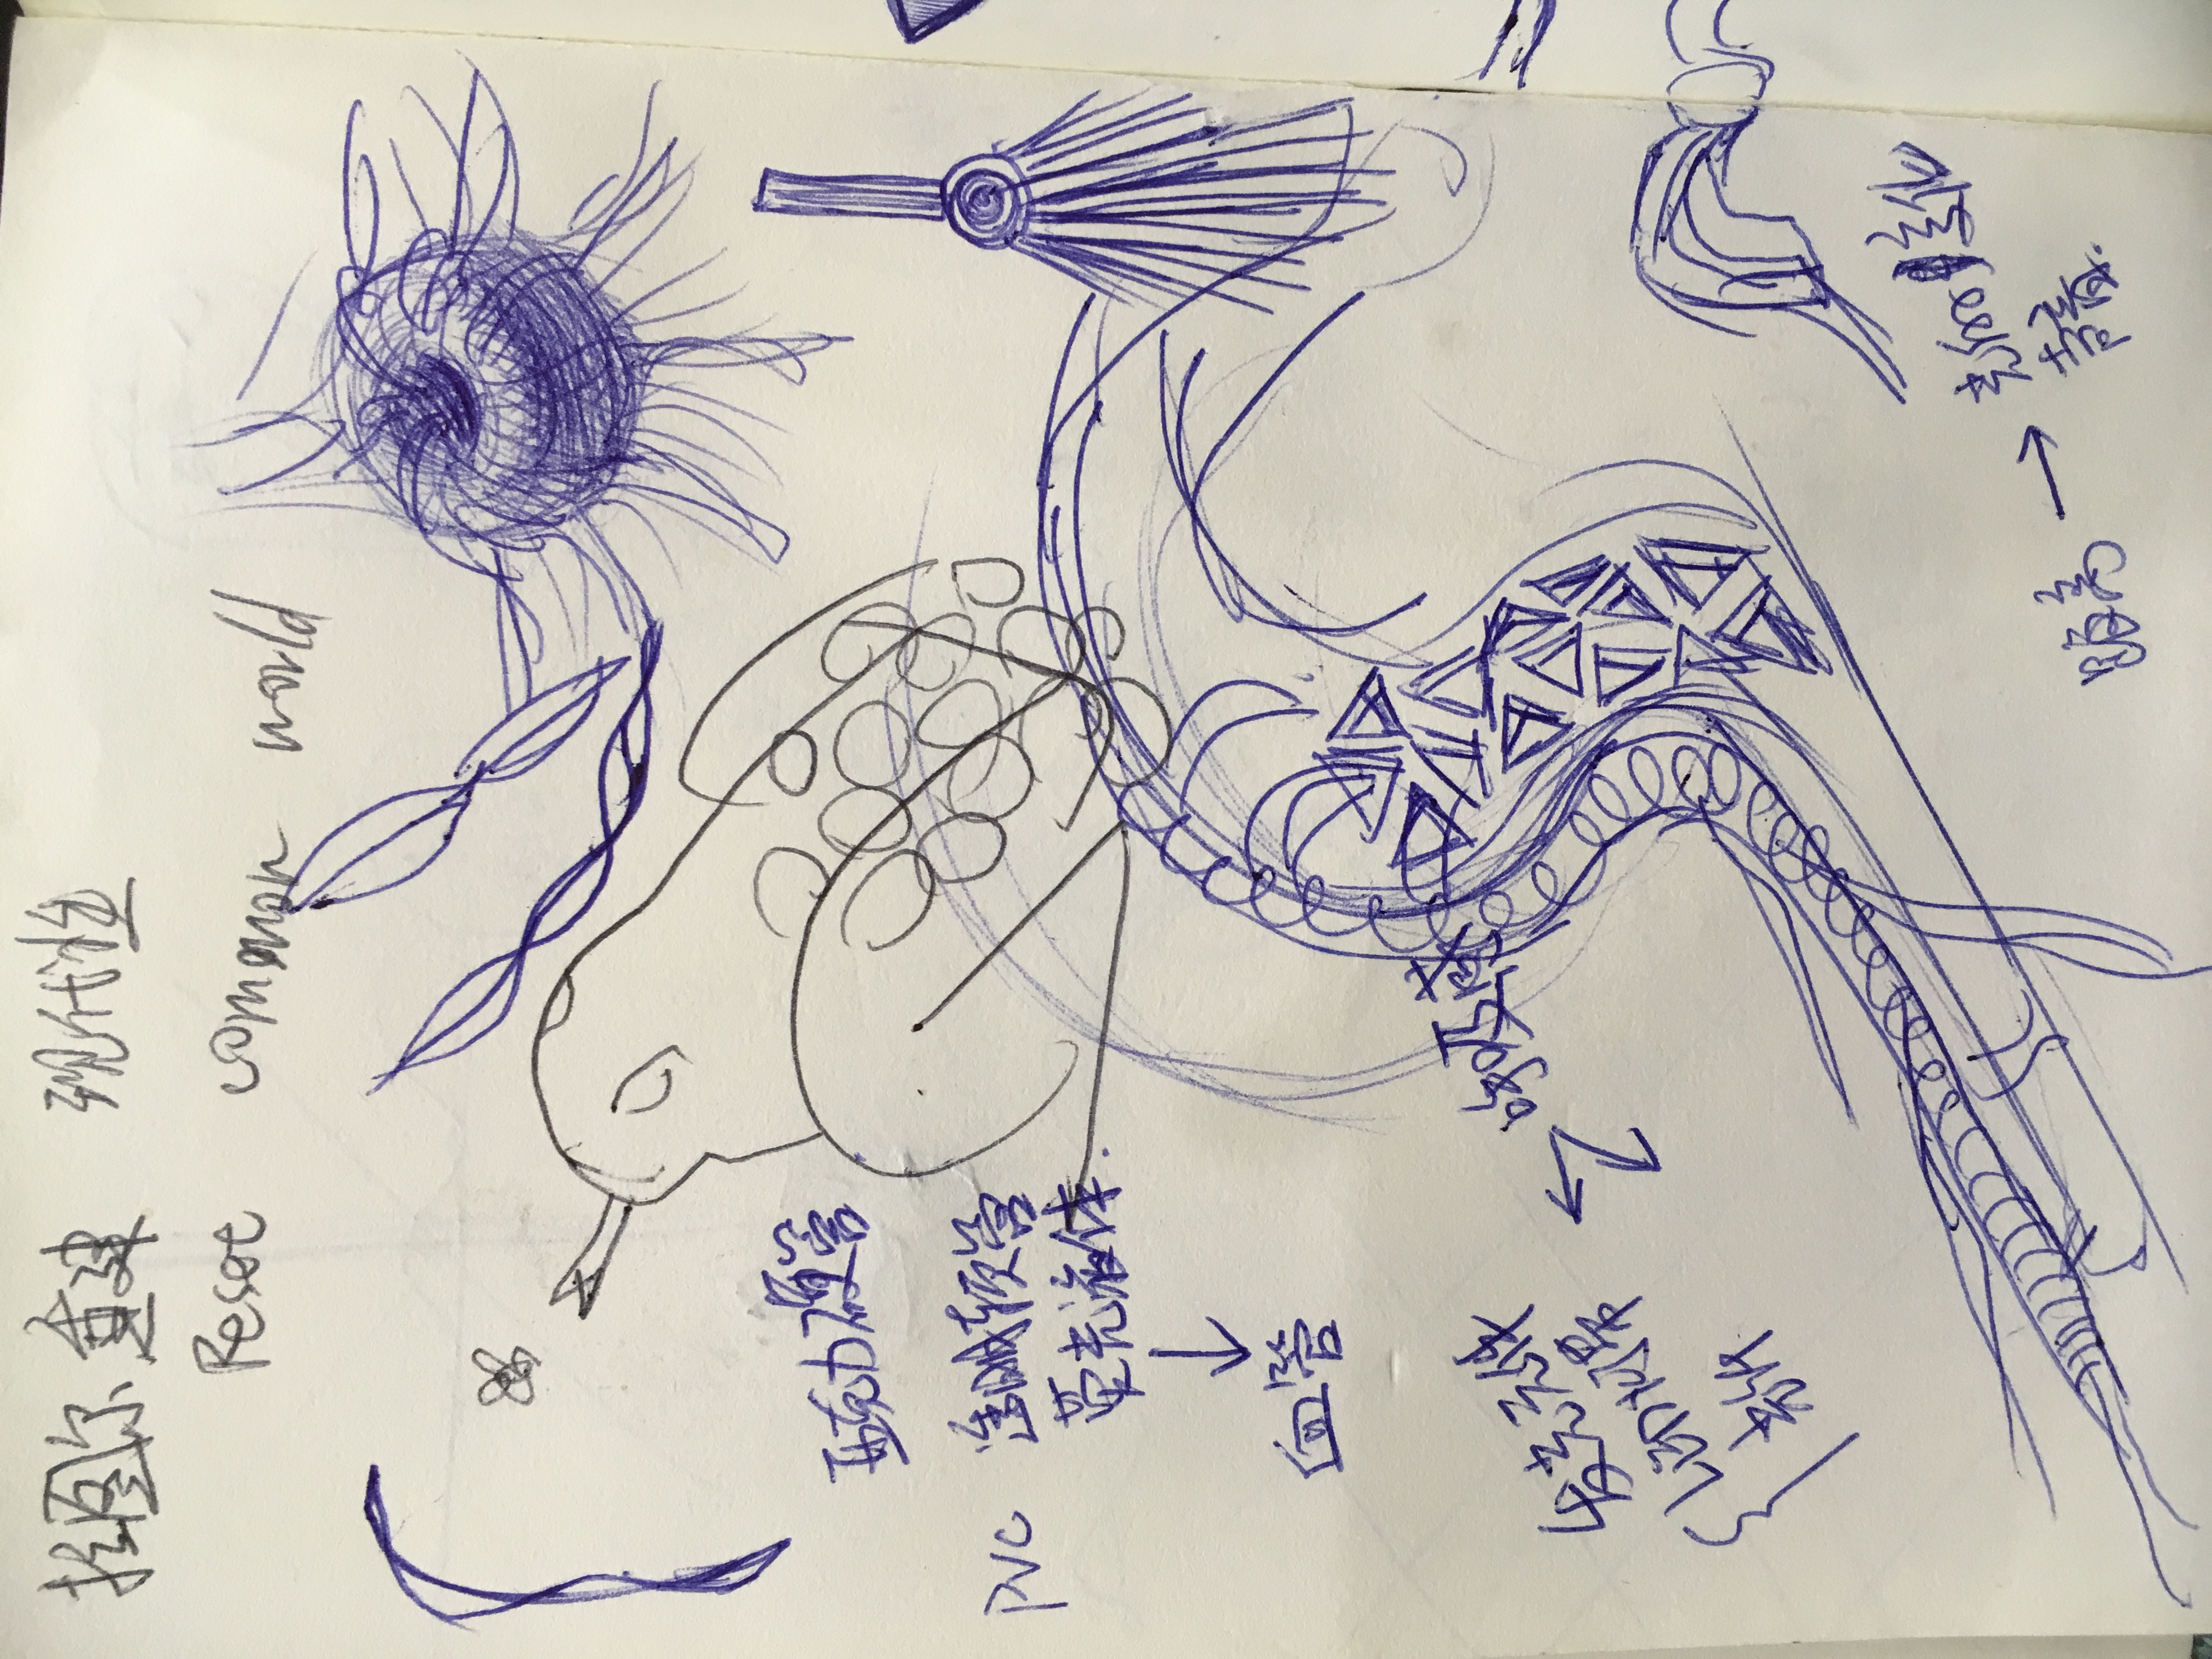 拉图尔重建 现代性
Reset common world
亚克力硬管
PVC 透明软管
荧光液体.
血管
呼吸感
发光元件
LED灯带
光纤
光的变化
距离 →
声音.